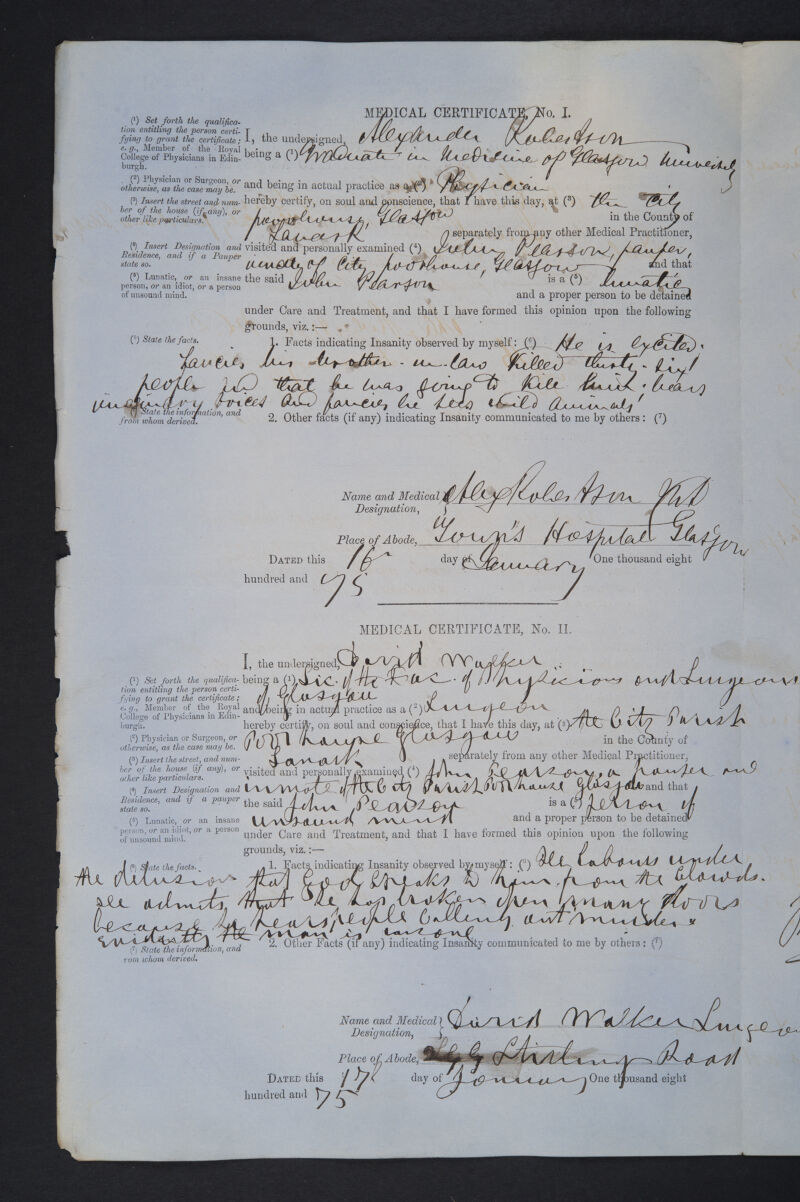 MEDICAL CERTIFICATE, No. I.
(¹) Set forth the qualifica-
tion entitling the person certi-
fying to grant the certificate;
e.g., Member of the Royal
College of Physicians in Edin-
burgh.
(²) Physician or Surgeon, or
otherwise, as the case may be.
(³) Insert the street and num-
ber of the house (if any), or
other like particulars.
(⁴) Insert Designation and
Residence, and if a Pauper
state so.
(⁵) Lunatic, or an insane
person, or an idiot, or a person
of unsound mind.
I, the undersigned, Alexander Robertson
being a (¹) Graduate in Medicine of Glasgow University
and being in actual practice as a (²) Physician
hereby certify, on soul and conscience, that I have this day, at (³) the City
poorhouse, Glasgow in the County of
Lanark separately from any other Medical Practitioner,
visited and personally examined (⁴) John Pearson, pauper,
inmate of City poorhouse, Glasgow and that
the said John Pearson is a (⁵) lunatic
and a proper person to be detained
under Care and Treatment, and that I have formed this opinion upon the following
grounds, viz.:—
(⁶) State the facts.
1. Facts indicating Insanity observed by myself: (⁶) He is excited.
Fancies his brother-in-law killed thirty-six
people and that he was going to kill him. hears
imaginary voices and fancies he sees wild animals
(⁷) State the information, and
from whom derived.
2. Other facts (if any) indicating Insanity communicated to me by others: (⁷)
Name and Medical Designation, Alex Robertson MD
Place of Abode, Town's Hospital Glasgow
DATED this 16 day of January One thousand eight
hundred and 75
MEDICAL CERTIFICATE, No. II.
(¹) Set forth the qualifica-
tion entitling the person certi-
fying to grant the certificate;
e.g., Member of the Royal
College of Physicians in Edin-
burgh.
(²) Physician or Surgeon, or
otherwise, as the case may be.
(³) Insert the street, and num-
ber of the house (if any), or
other like particulars.
(⁴) Insert Designation and
Residence, and if a pauper
state so.
(⁵) Lunatic, or an insane
person, or an idiot, or a person
of unsound mind.
I, the undersigned, David Walker
being a (¹) Lic. of the Fac. of Physicians and Surgeons
of Glasgow
and being in actual practice as a (²) Surgeon
hereby certify, on soul and conscience, that I have this day, at (³) the City Parish
Poorhouse Glasgow in the County of
Lanark separately from any other Medical Practitioner,
visited and personally examined (⁴) John Pearson a pauper and
inmate of the City Parish Poorhouse Glasgow and that
the said John Pearson is a (⁵) person of
unsound mind and a proper person to be detained
under Care and Treatment, and that I have formed this opinion upon the following
grounds, viz.:—
(⁶) State the facts.
1. Facts indicating Insanity observed by myself: (⁶) He labours under
the delusion that God speaks to him from the clouds.
He admits that he has broken open many doors
because he hears people calling out murder.
Evidently the man is insane
(⁷) State the information, and
from whom derived.
2. Other Facts (if any) indicating Insanity communicated to me by others: (⁷)
Name and Medical Designation, David Walker Surgeon
Place of Abode, Stirling Road
DATED this 17 day of January One thousand eight
hundred and 75